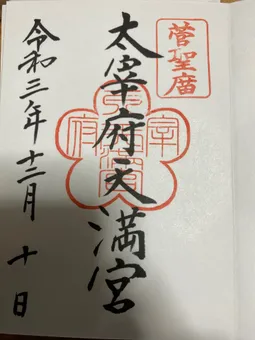 菅聖庿
太宰府天満宮
令和三年十二月 十日